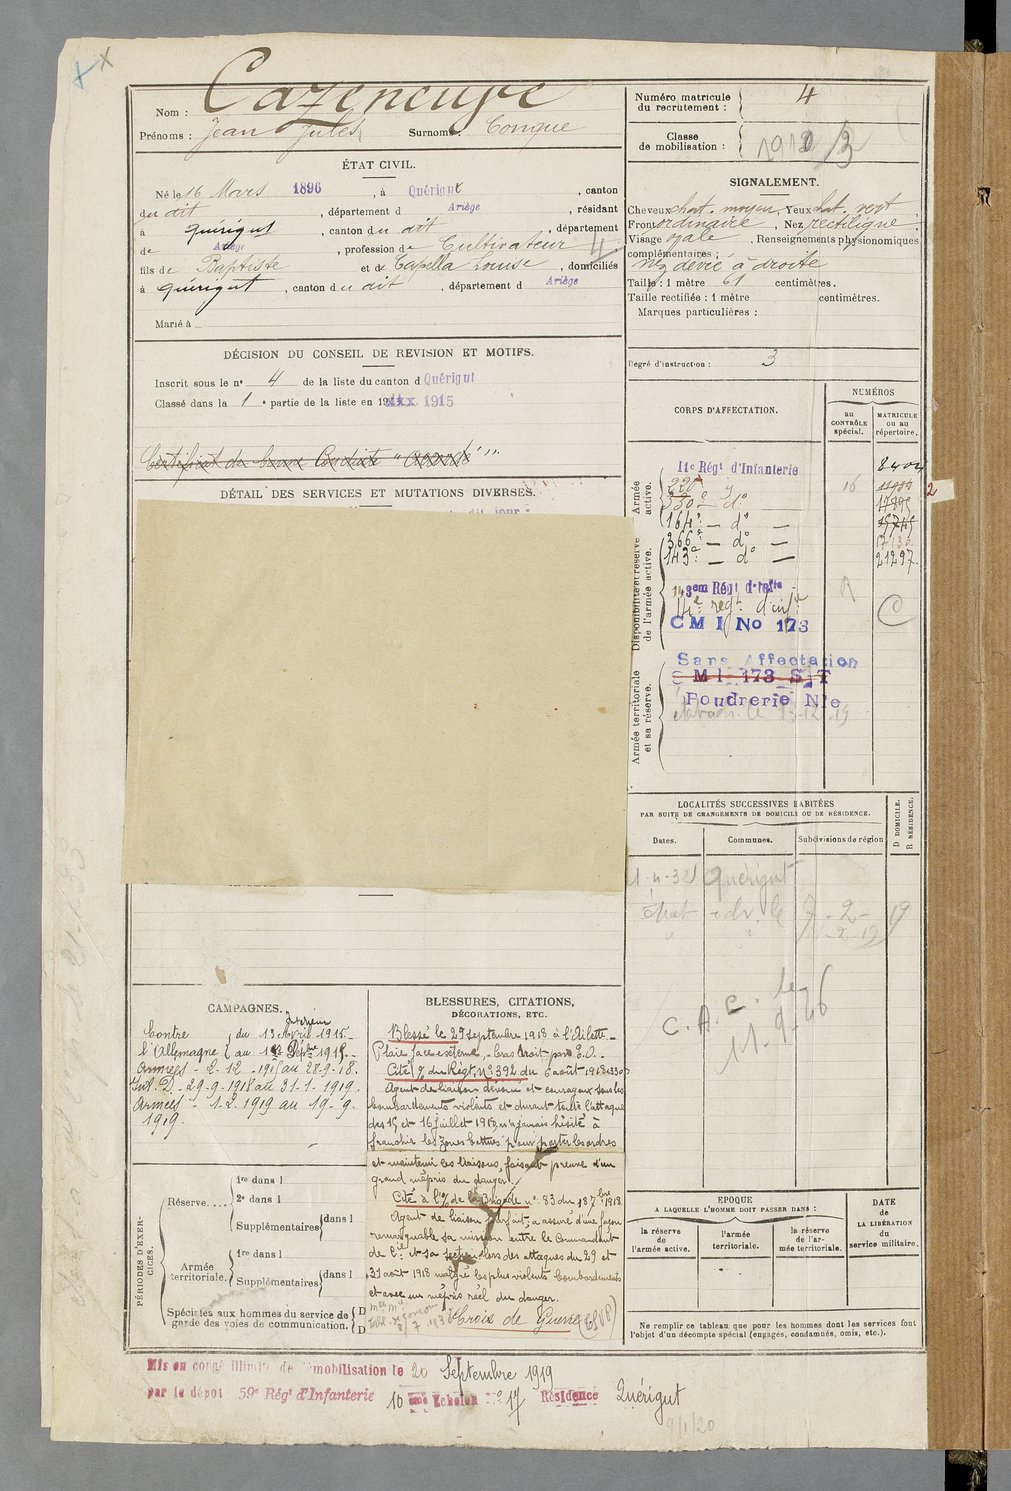 Nom : Cazeneuve
Prénoms : Jean Jules Surnoms : Conque
ÉTAT CIVIL.
Né le 16 Mars 1896, à Quérigut, canton
du dit, département d Ariège, résidant
à Quérigut, canton du dit, département
de Ariège, profession de Cultivateur
fils de Baptiste et de Capella Louise, domiciliés
à Quérigut, canton du dit, département d Ariège
Marié à
DÉCISION DU CONSEIL DE REVISION ET MOTIFS.
Inscrit sous le n° 4 de la liste du canton d Quérigut
Classé dans la 1 e partie de la liste en 19 1915
Certificat de bonne Conduite "Accordé"
DÉTAIL DES SERVICES ET MUTATIONS DIVERSES.
Numéro matricule du recrutement : 4
Classe de mobilisation :
SIGNALEMENT.
Cheveux chat. moyen. Yeux chat. vert
Front ordinaire, Nez rectiligne
Visage ovale, Renseignements physionomiques
complémentaires :
Nez dévié à droite
Taille : 1 mètre 61 centimètres.
Taille rectifiée : 1 mètre centimètres.
Marques particulières :
Degré d'instruction : 3
CORPS D'AFFECTATION.
NUMÉROS
au CONTRÔLE spécial.
MATRICULE ou au répertoire.
Armée active.
11e Régt d'Infanterie 8404
220
330e d°
164e — d° —
366e — d° —
143e — d° — 21297
16
2
Disponibilité et réserve de l'armée active.
143em Régt d'Infie
14e regt d'infie
C M I No 173
C
Armée territoriale et sa réserve.
Sans Affectation
C M I 173 S T
Poudrerie Nle
LOCALITÉS SUCCESSIVES HABITÉES
PAR SUITE DE CHANGEMENTS DE DOMICILE OU DE RÉSIDENCE.
Dates.
Communes.
Subdivisions de région
D DOMICILE.
R RÉSIDENCE.
1-4-32 Quérigut
C. A. C. le
11-9-26
CAMPAGNES.
Intérieur
Contre l'Allemagne { du 13 Avril 1915
au 1er Xbre 1915.
Armées - 2-12-1915 au 28-9-18.
Int. D - 29-9-1918 au 31-1-1919.
Armées - 1-2-1919 au 19-9-
1919.
BLESSURES, CITATIONS,
DÉCORATIONS, ETC.
Blessé le 29 septembre 1918 à l'Ailette
Plaie face externe, bras droit par E.O.
Cité O/ du Régt n° 392 du 6 août 1918
Agent de liaison dévoué et courageux sous les
bombardements violents et durant toute l'attaque
des 15 et 16 juillet 1918, n'a jamais hésité à
franchir les zones battues pour porter les ordres
et maintenir les liaisons, faisant preuve d'un
grand mépris du danger.
Cité à l'O/ de la Brigade n° 83 du 18 7bre 1918.
Agent de liaison parfait, a assuré d'une façon
remarquable sa mission entre le Commandant
de Cie et sa section lors des attaques du 29 et
31 août 1918 malgré les plus violents bombardements
et avec un mépris réel du danger.
Croix de Guerre
PÉRIODES D'EXERCICES.
Réserve....
1re dans l
2e dans l
Supplémentaires dans l
Armée territoriale.
1re dans l
Supplémentaires dans l
Spéciales aux hommes du service de
garde des voies de communication.
D
D
EPOQUE
A LAQUELLE L'HOMME DOIT PASSER DANS :
la réserve de l'armée active.
l'armée territoriale.
la réserve de l'armée territoriale.
DATE de LA LIBÉRATION du service militaire.
Ne remplir ce tableau que pour les hommes dont les services font
l'objet d'un décompte spécial (engagés, condamnés, omis, etc.).
Mis en congé illimité de démobilisation le 20 Septembre 1919
par le dépot 59e Régt d'Infanterie 10 ème Echelon n° 17 Résidence Quérigut
9/1/20